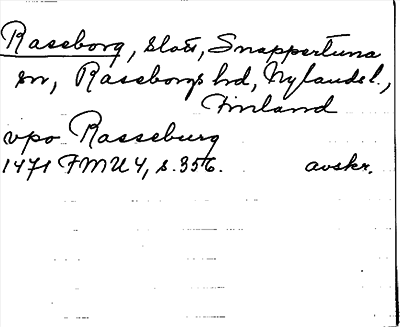 Raseborg, slott, Snappertuna
sn, Raseborgs hd, Nylands l.,
Finland
vpo Rasseburg
1471 FMU 4, s. 356. avskr.